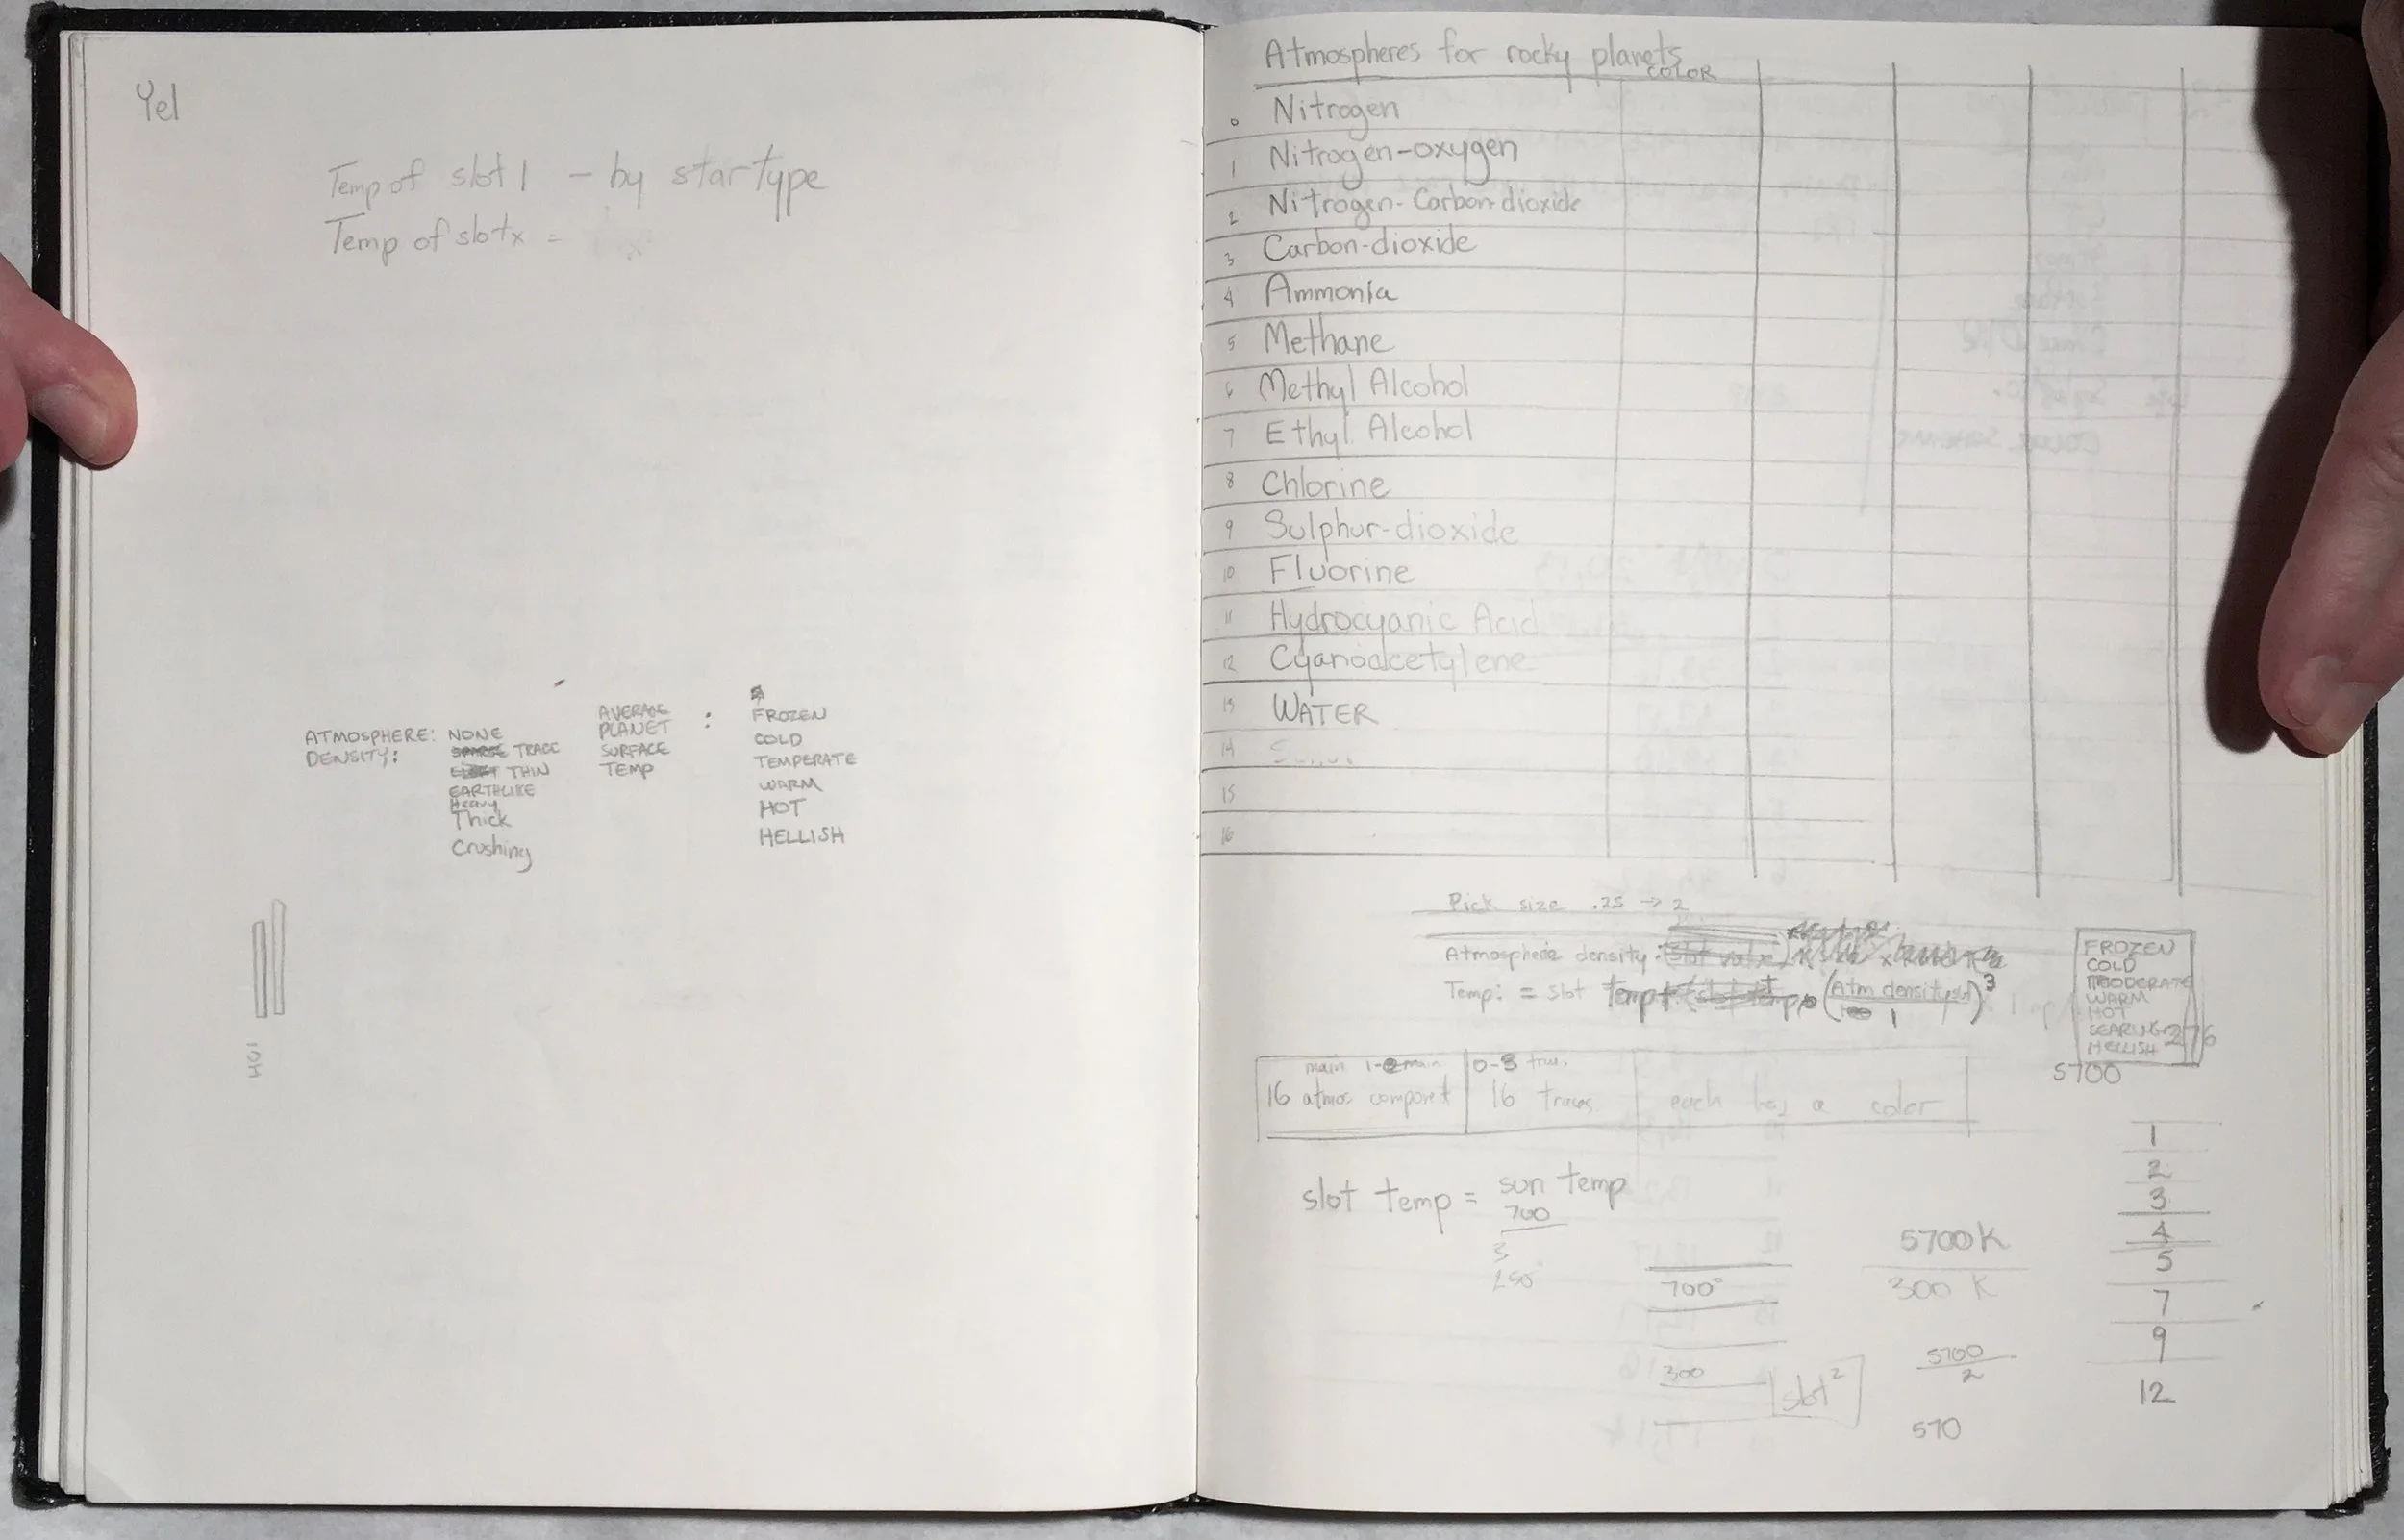 Yel
Temp of slot 1 - by star type
Temp of slot x =
ATMOSPHERE: NONE
DENSITY: TRACE
THIN
EARTHLIKE
Heavy
Thick
Crushing
AVERAGE
PLANET :
SURFACE
TEMP
FROZEN
COLD
TEMPERATE
WARM
HOT
HELLISH
HOT
Atmospheres for rocky planets
COLOR
0 Nitrogen
1 Nitrogen-oxygen
2 Nitrogen-Carbon-dioxide
3 Carbon-dioxide
4 Ammonia
5 Methane
6 Methyl Alcohol
7 Ethyl Alcohol
8 Chlorine
9 Sulphur-dioxide
10 Fluorine
11 Hydrocyanic Acid
12 Cyanoacetylene
13 WATER
14
15
16
Pick size .25 → 2
Atmosphere density:
Temp: = slot temp (Atm density / 1)³
FROZEN
COLD
MODERATE
WARM
HOT
SEARING 276
HELLISH
5700
main 1- main 0-3
16 atmos componet 16 traces each has a color
slot temp = sun temp
700
3
700°
300
slot²
5700K
300 K
5700
2
570
1
2
3
4
5
7
9
12